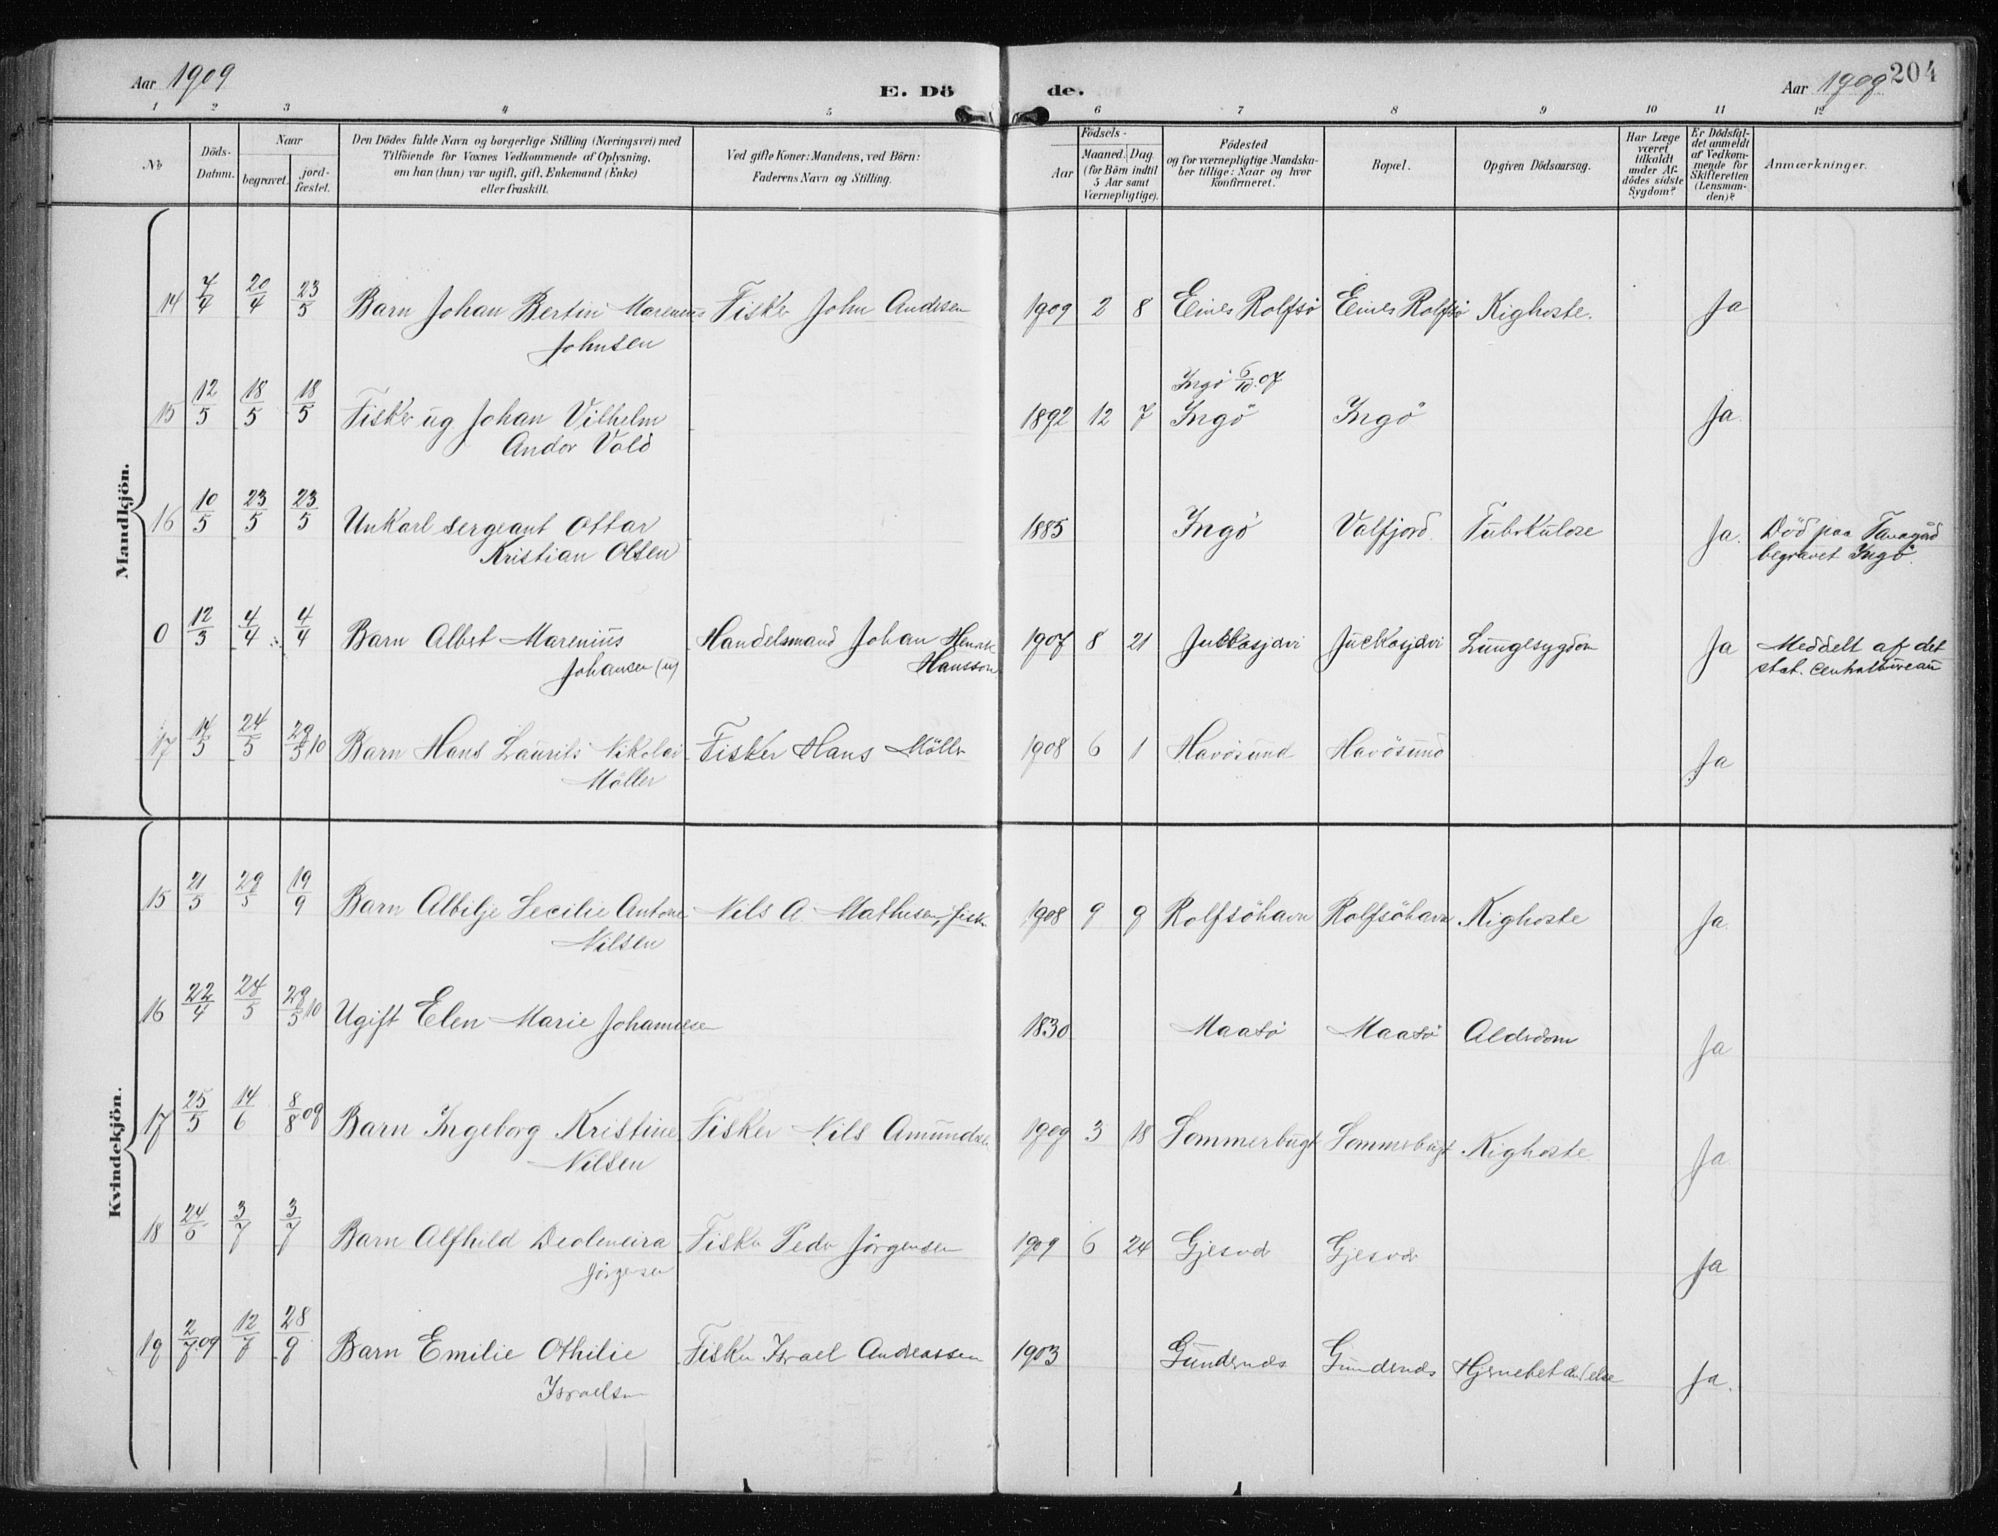 Aar 1909
E. Dö
de.
Aar 1909
204
1 2 3 4 5 6 7 8 9 10 11 12
№
Döds-Datum.
Naar
begravet.
jord-fæstet.
Den Dödes fulde Navn og borgerlige Stilling (Næringsvei) med
Tilföiende for Voxnes Vedkommende af Oplysning,
om han (hun) var ugift, gift, Enkemand (Enke)
eller fraskilt.
Ved gifte Koner: Mandens, ved Börn:
Faderens Navn og Stilling.
Födsels-
Aar
Maaned.
Dag
(for Börn indtil
5 Aar samt
Værnepligtige).
Födested
og for værnepligtige Mandska-
ber tillige: Naar og hvor
konfirmeret.
Bopæl.
Opgiven Dödsaarsag.
Har Læge
været
tilkaldt
under Af-
dödes sidste
Sygdom?
Er Dödsfal-
det anmeldt
af Vedkom-
mende for
Skifteretten
(Lensman-
den)?
Anmærkninger.
Mandkjön.
14 7/4 20/4 23/5 Barn Johan Bertin Marenius Fisker John Andersen 1909 2 8 Eines Rolfsö Eines Rolfsö Kighoste. Ja
Johnsen
Ingö 6/10 07
15 12/5 18/5 18/5 Fisker ug Johan Vilhelm 1892 12 7 Ingö Ingö Ja.
Andor Vold
16 10/5 23/5 23/5 Unkarl sergeant Ottar 1885 Ingö Valfjord. Tuberkulose Ja. Död paa
Kristian Olsen begravet Ingö.
0 12/3 4/4 4/4 Barn Albert Marenius Handelsmand Johan Henrik 1907 8 21 Jukkasjervi Juckasjervi Lungesygdom Ja Meddelt af det
Johansen (u) Hansson stat. centralbureau
17 14/5 24/5 29/5 10 Barn Hans Laurits Nikolai Fisker Hans Möller 1908 6 1 Havösund Havösund Ja
Möller
Kvindekjön.
15 21/5 29/5 19/9 Barn Albilje Cecilie Antone Nils A. Mathisen, fisker 1908 9 9 Rolfsöhavn Rolfsöhavn Kighoste Ja.
Nilsen
16 22/4 24/5 29/5 10 Ugift Elen Marie Johannesen 1830 Maasö Maasö Alderdom Ja
17 25/5 14/6 8/8 09 Barn Ingeborg Kristine Fisker Nils Amundsen 1909 3 18 Sommerbugt Sommerbugt Kighoste. Ja.
Nilsen
18 24/6 3/7 3/7 Barn Alfhild Deoleneira Fisker Peder Jörgensen 1909 6 24 Gjesvær Gjesvær Ja
Jörgensen
19 2/7 09 12/7 28/9 Barn Emilie Othilie Fisker Israel Andreassen 1903 Gundernes Gundernes Hjernebetændelse Ja.
Israelsen